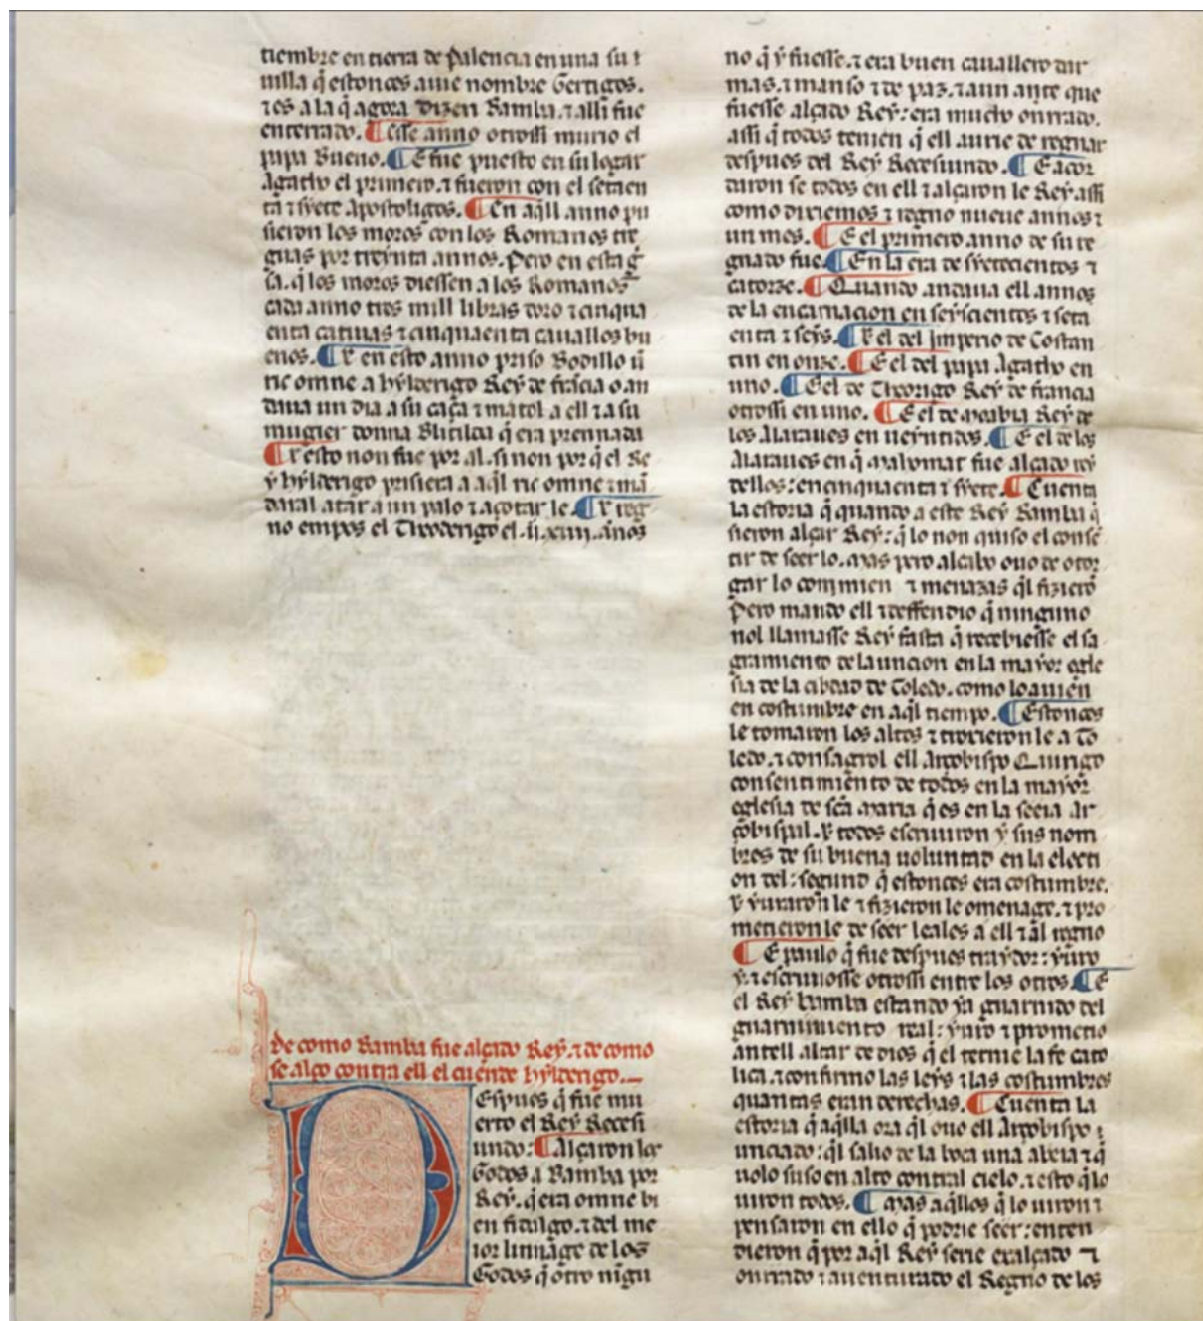 tiembre en tierra de Palencia en una su t
uilla q̃ estonces auie nombre Gertigos.
⁊ es a la q̃ agora dizen Bamba. ⁊ alli fue
enterrado. ¶ Esse anno otrossi murio el
papa Bueno. ¶ E fue puesto en su logar
Agatho el primero. ⁊ fueron con el setaen
ta ⁊ syete apostoligos. ¶ En aq̃ll anno pu
sieron los moros con los Romanos tre
guas por treynta annos. Pero en esta g̃
sa. q̃ los moros diessen a los Romanos
cada anno tres mill libras doro ⁊ cinqua
enta catiuas ⁊ cinquaenta cauallos bu
enos. ¶ E en esto anno priso Bodillo ũ
ric omne a hylderigo Rey de frãcia o an
daua un dia a su caça ⁊ matol a ell ⁊ a su
mugier donna Blitilda q̃ era prennada
¶ E esto non fue por al. si non por q̃ el Re
y hylderigo prisiera a aq̃l ric omne ⁊ mã
daral atar a un palo ⁊ açotar le. ¶ E reg
no empos el Theoderigo el .ii. xiiii. años
de como Bamba fue alçado Rey. ⁊ de como
se alço contra ell el cuende hylderigo.
Espues q̃ fue mu
erto el Rey Recesi
undo: ¶ Alçaron los
Godos a Bamba por
Rey. q̃ era omne bi
en fidalgo. ⁊ del me
ior linnage de los
Godos q̃ otro nigu
no q̃ y fuesse. ⁊ era buen cauallero dar
mas. ⁊ manso ⁊ de paz. ⁊ aun ante que
fuesse alçado Rey: era mucho onrrado.
assi q̃ todos tenien q̃ ell aurie de regnar
despues del Rey Recesiundo. ¶ E acor
daron se todos en ell ⁊ alçaron le Rey. assi
como dixiemos ⁊ regno nueue annos ⁊
un mes. ¶ E el primero anno de su re
gnado fue ¶ En la era de syetecientos ⁊
catorze. ¶ Quando andaua ell annos
de la encarnacion en seyscientos ⁊ seta
enta ⁊ seys. ¶ E el del Jmperio de Costan
tin en onze. ¶ E el del papa Agatho en
uno. ¶ E el de Theorigo Rey de francia
otrossi en uno. ¶ E el de Moabia Rey de
los Alaraues en ueyntidos. ¶ E el de los
Alaraues en q̃ Mahomat fue alçado rey
dellos: en cinquaenta ⁊ syete. ¶ Cuenta
la estoria q̃ quando a este Rey Bamba q̃
sieron alçar Rey: q̃ lo non quiso el conse
tir de seer lo. Mas pero alcabo ouo de otor
gar lo con mien ⁊ menazas q̃l fizierõ
Pero mando ell ⁊ deffendio q̃ ninguno
nol llamasse Rey fasta q̃ recebiesse el sa
gramiento de la uncion en la mayor egle
sia de la cibdad de Toledo. como lo auien
en costumbre en aq̃l tiempo. ¶ Estonces
le tomaron los altos ⁊ troxieron le a To
ledo. ⁊ consagrol ell Arçobispo Quirigo
consentimiento de todos en la mayor
eglesia de sc̃a Maria q̃ es en la seeia Ar
çobispal. E todos escriuiron y sus nom
bres de su buena uoluntad en la electi
on del: segund q̃ estonces era costumbre.
E yuraron le ⁊ fizieron le omenage. ⁊ pro
metieron le de seer leales a ell ⁊ al regno
¶ E Paulo q̃ fue despues traydor: yuro
y. ⁊ escriuiosse otrossi entre los otros. ¶ E
el Rey bamba estando ya guarnido del
guarnimiento real: yuro ⁊ prometio
antell altar de dios q̃ el ternie la fe cato
lica. ⁊ confirmo las leys ⁊ las costumbres
quantas eran derechas. ¶ Cuenta la
estoria q̃ aq̃lla ora q̃l ouo ell Arçobispo ⁊
unciado: q̃l salio de la boca una abeia ⁊ q̃
uolo suso en alto contral cielo. ⁊ esto q̃lo
uiron todos. ¶ Mas aq̃llos q̃ lo uiron ⁊
pensaron en ello q̃ podrie seer: enten
dieron q̃ por aq̃l Rey serie exalçado ⁊
onrrado ⁊ auenturado el Regno de los